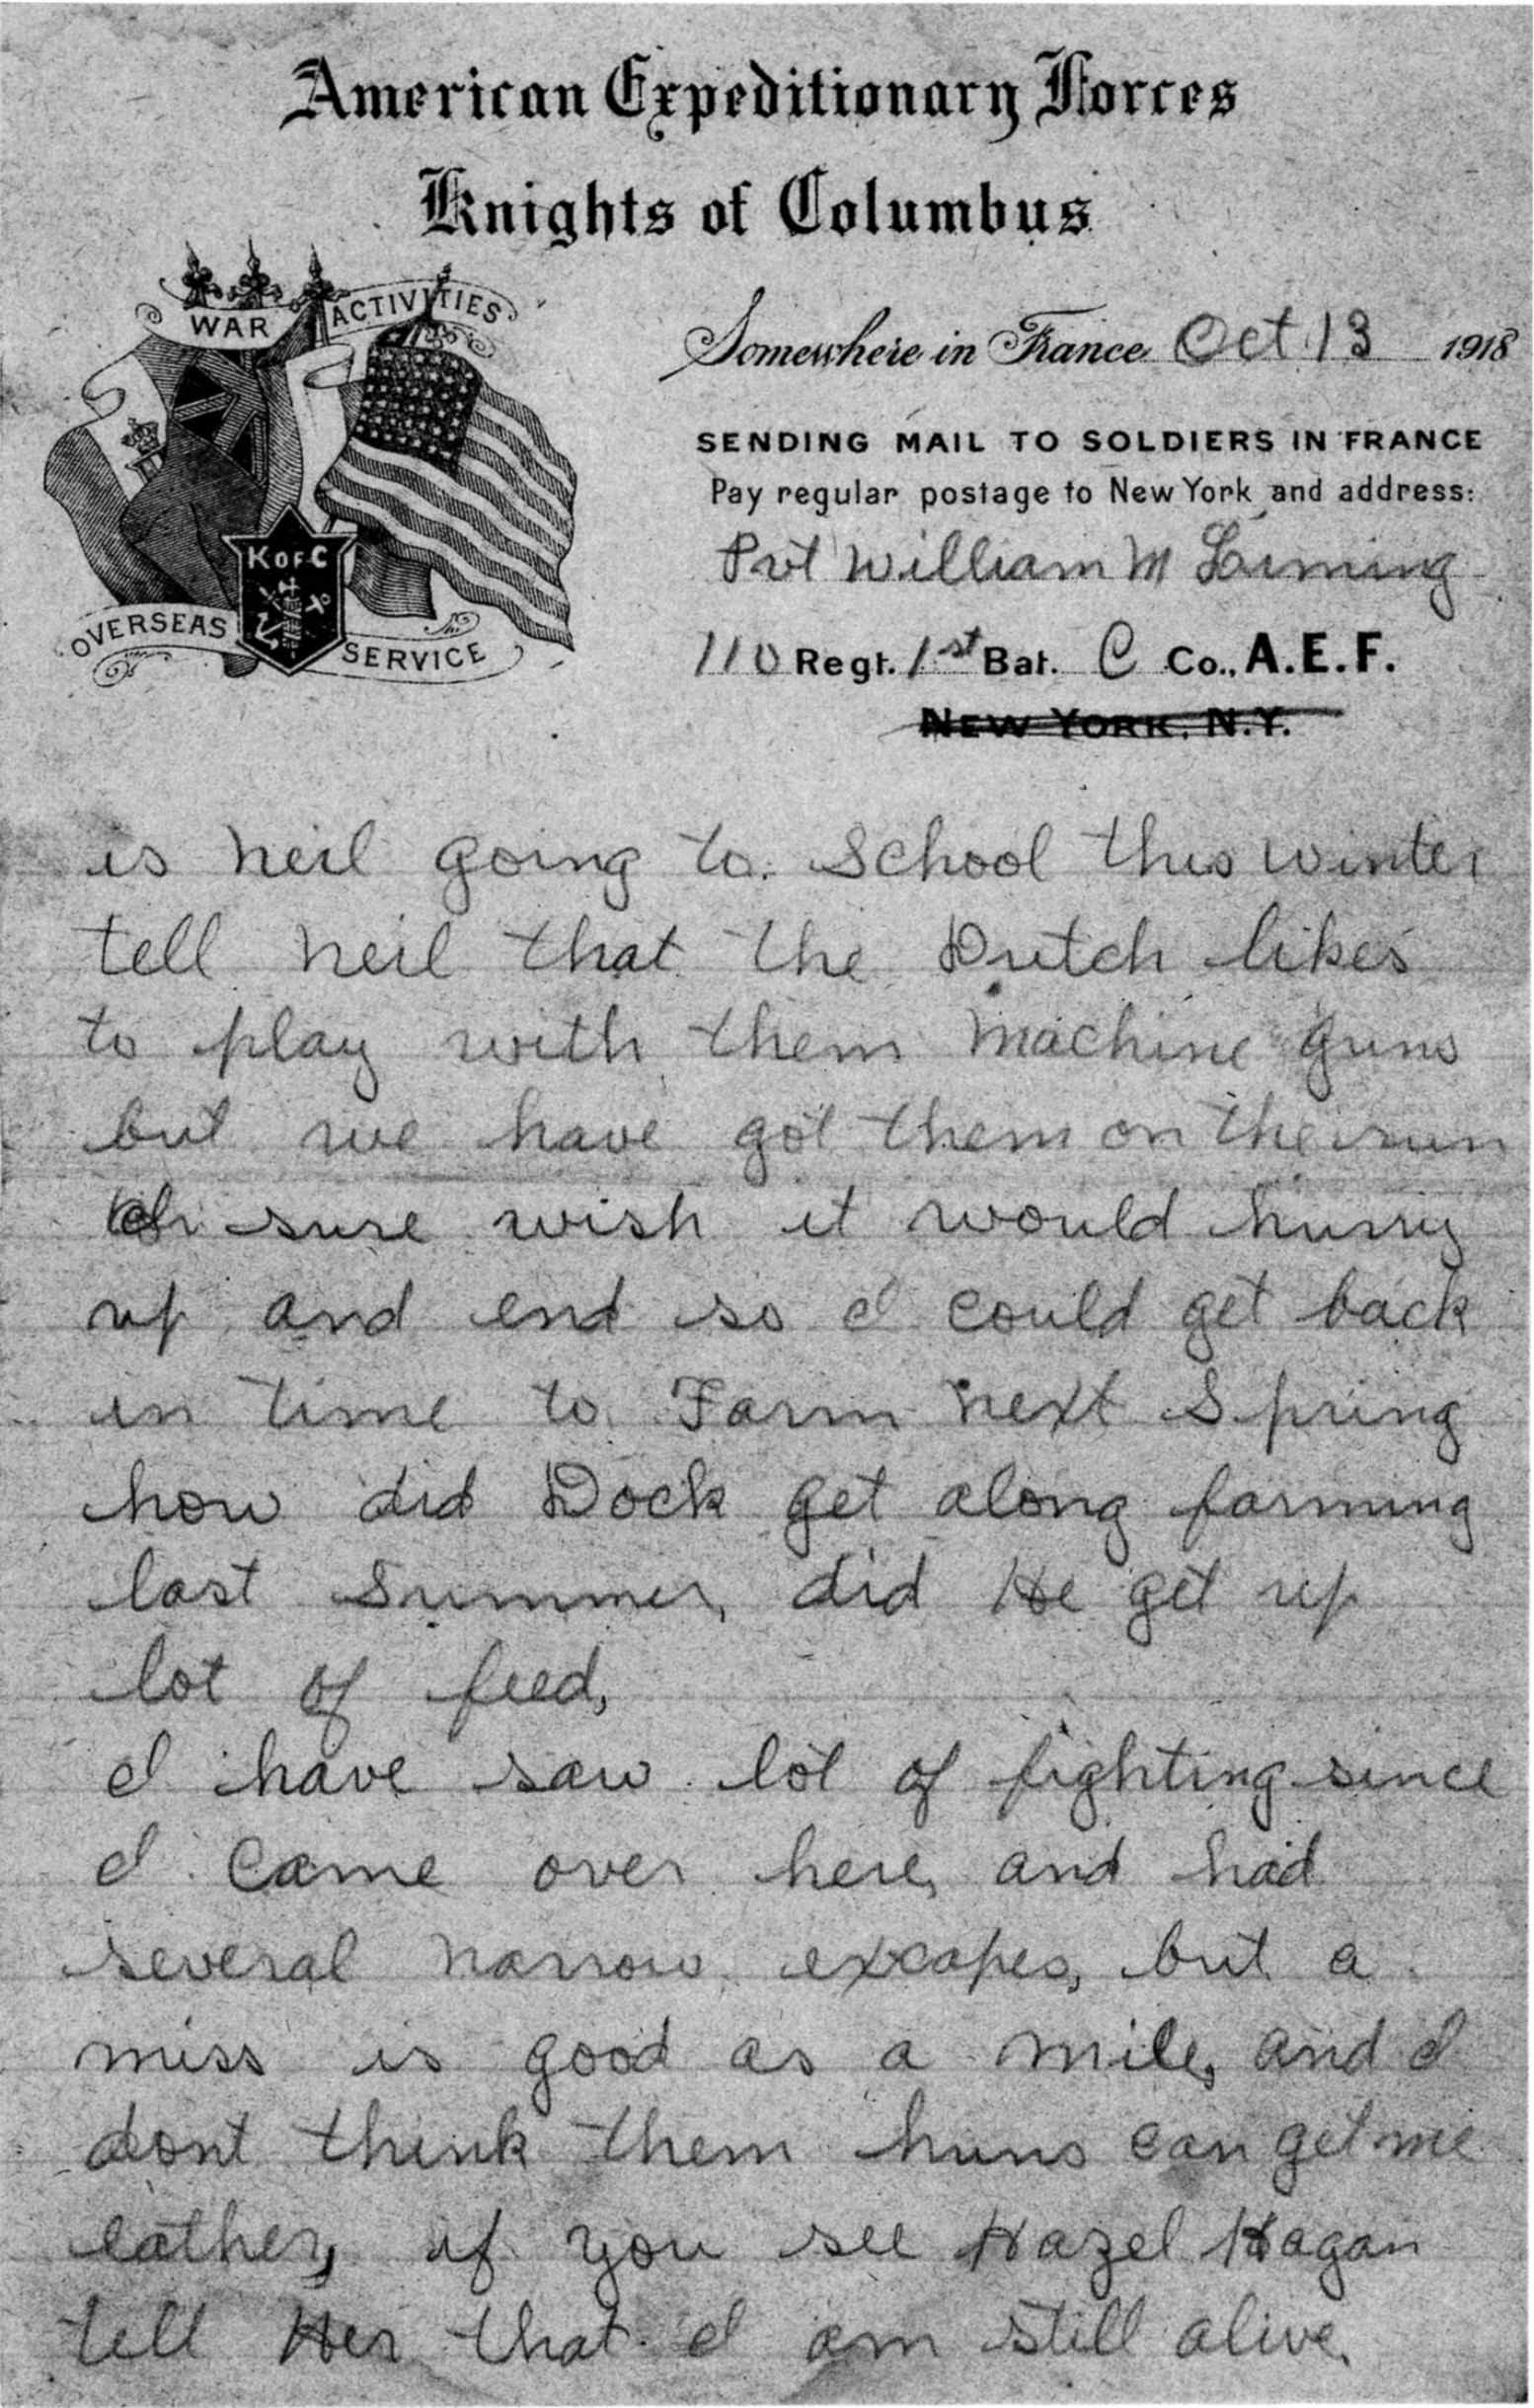 American Expeditionary Forces
Knights of Columbus
WAR ACTIVITIES
K OF C
OVERSEAS SERVICE
Somewhere in France Oct 13 1918
SENDING MAIL TO SOLDIERS IN FRANCE
Pay regular postage to New York and address:
Pvt William M Liming
110 Regt. 1st Bat. C Co., A.E.F.
NEW YORK, N.Y.
is neil going to. School this winter
tell neil that the Dutch likes
to play with them machine guns
but we have got them on the run
sure wish it would hurry
up and end so I could get back
in time to Farm next Spring
how did Dock get along farming
last Summer, did He get up
lot of feed,
I have saw lot of fighting since
I came over here, and had
several narrow excapes, but a
miss is good as a mile, and I
dont think them huns can get me
eather, if you see Hazel Hagan
tell Her that I am still alive,